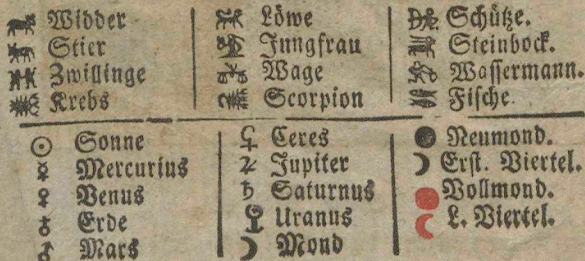 Widder
Stier
Zwillinge
Krebs
Löwe
Jungfrau
Wage
Scorpion
Schütze.
Steinbock.
Wassermann.
Fische.
☉ Sonne
☿ Mercurius
♀ Venus
♁ Erde
♂ Mars
⚳ Ceres
♃ Jupiter
♄ Saturnus
Uranus
☽ Mond
Neumond.
Erst. Viertel.
Vollmond.
L. Viertel.